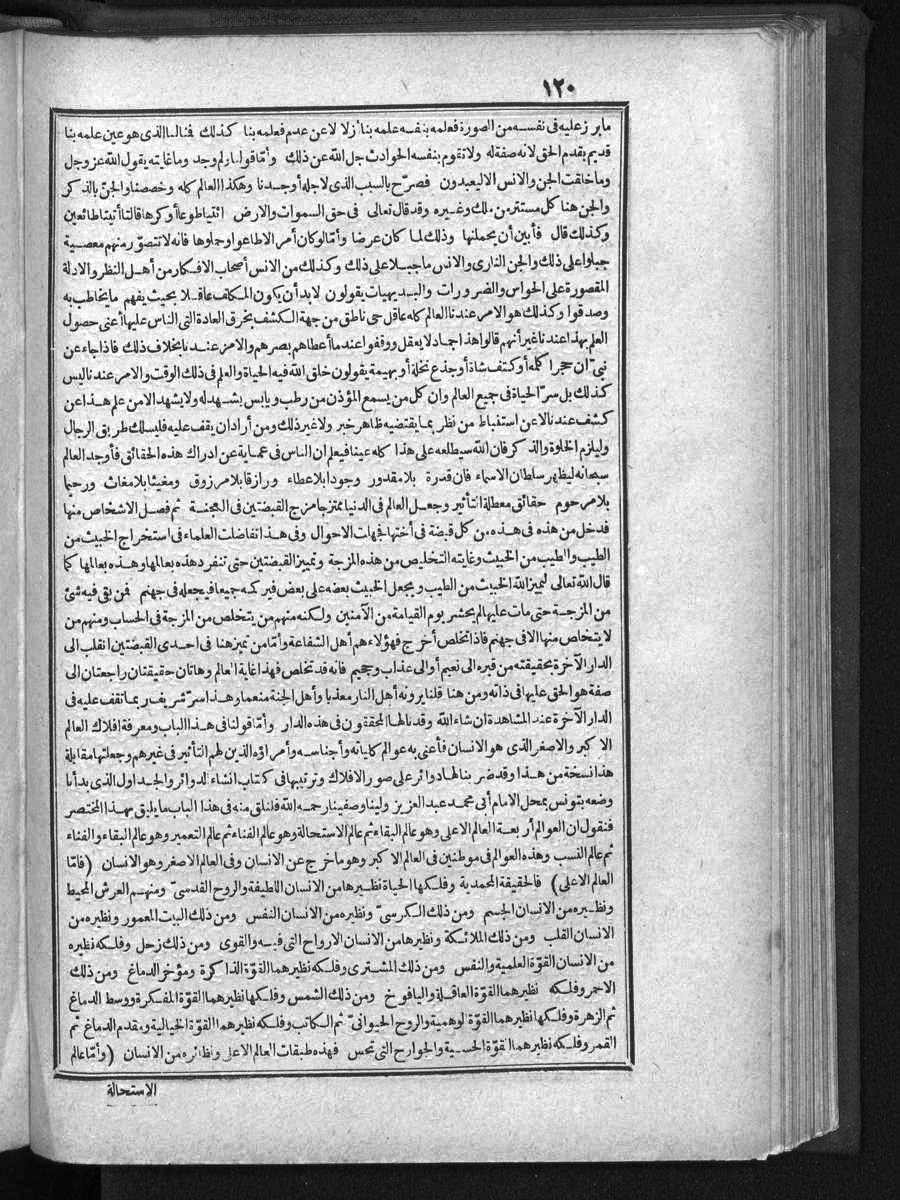 ١٢٠
ما برز عليه فى نفسه من الصورة فعلمه بنفسه علمه بنا أزلا لا عن عدم فعلمه بنا كذلك فثالنا الذى هو عين علمه بنا
قديم بقدم الحق لانه صفة له ولا تقوم بنفسه الحوادث جل الله عن ذلك وأما قولنا ولم وجد وما غايته يقول الله عز وجل
وما خلقت الجن والانس الا ليعبدون فصرح بالسبب الذى لاجله أوجدنا وهكذا العالم كله وخصصنا والجن بالذكر
والجن هنا كل مستتر من ملك وغيره وقد قال تعالى فى حق السموات والارض ائتيا طوعا أو كرها قالتا أتينا طائعين
وكذلك قال فأبين أن يحملنها وذلك لما كان عرضا وأما لو كان أمر الاطاعوا وحملوها فانه لا تتصور منهم معصية
جبلوا على ذلك والجن النارى والانس ما جبلا على ذلك وكذلك من الانس أصحاب الافكار من أهل النظر والادلة
المقصورة على الحواس والضرورات والبديهيات يقولون لا بد أن يكون المكلف عاقلا بحيث يفهم ما يخاطب به
وصدقوا وكذلك هو الامر عندنا العالم كله عاقل حى ناطق من جهة الكشف بخرق العادة التى الناس عليها أعنى حصول
العلم بهذا عندنا غير أنهم قالوا هذا جماد لا يعقل ووقفوا عند ما أعطاهم بصرهم والامر عندنا بخلاف ذلك فاذا جاء عن
نبى أن حجرا كله أو كتف شاة أو جذع نخلة أو بهيمة يقولون خلق الله فيه الحياة والعلم فى ذلك الوقت والامر عندنا ليس
كذلك بل سر الحياة فى جميع العالم وان كل من يسمع المؤذن من رطب ويابس يشهد له ولا يشهد الا من علم هذا عن
كشف عندنا لا عن استنباط من نظر بما يقتضيه ظاهر خبر ولا غير ذلك ومن أراد ان يقف عليه فليسلك طريق الرجال
وليلزم الخلوة والذكر فان الله سيطلعه على هذا كله عينا فيعلم ان الناس فى عماية عن ادراك هذه الحقائق فأوجد العالم
سبحانه ليظهر سلطان الاسماء فان قدرة بلا مقدور وجودا بلا عطاء ورازقا بلا مرزوق ومغيثا بلا مغاث ورحيما
بلا مرحوم حقائق معطلة التأثير وجعل العالم فى الدنيا ممتزجا مزج القبضتين فى العجنة ثم فصل الاشخاص منها
فدخل من هذه فى هذه من كل قبضة فى أختها فجهات الاحوال وفى هذا تفاضلت العلماء فى استخراج الخبيث من
الطيب والطيب من الخبيث وغايته التخليص من هذه المزجة وتمييز القبضتين حتى تنفرد هذه بعالمها وهذه بعالمها كما
قال الله تعالى ليميز الله الخبيث من الطيب ويجعل الخبيث بعضه على بعض فيركمه جميعا فيجعله فى جهنم فمن بقى فيه شئ
من المزجة حتى مات عليها لم يحشر يوم القيامة من الآمنين ولكنه منهم من يتخلص من المزجة فى الحساب ومنهم من
لا يتخلص منها الا فى جهنم فاذا تخلص أخرج فهؤلاء هم أهل الشفاعة وأما من تميز هنا فى احدى القبضتين انقلب الى
الدار الآخرة بحقيقته من قبره الى نعيم أو الى عذاب وجحيم فانه قد تخلص فهذا غاية العالم وهاتان حقيقتان راجعتان الى
صفة هو الحق عليها فى ذاته ومن هنا قلنا يرونه أهل النار معذبا وأهل الجنة منعما وهذا سر شريف ربما تقف عليه فى
الدار الآخرة عند المشاهدة ان شاء الله وقد نالها المحققون فى هذه الدار وأما قولنا فى هذا الباب ومعرفة افلاك العالم
الاكبر والاصغر الذى هو الانسان فأعنى به عوالم كلياته وأجناسه وأمراؤه الذين لهم التأثير فى غيرهم وجعلتها مقابلة
هذا نسخة من هذا وقد ضربنا لها دوائر على صور الافلاك وترتيبها فى كتاب انشاء الدوائر والجداول الذى بدأنا
وضعه بتونس بمحل الامام أبى محمد عبد العزيز ولينا وصفينا رحمه الله فلنلق منه فى هذا الباب ما يليق بهذا المختصر
فنقول ان العوالم أربعة العالم الاعلى وهو عالم البقاء ثم عالم الاستحالة وهو عالم الفناء ثم عالم التعمير وهو عالم البقاء والفناء
ثم عالم النسب وهذه العوالم فى موطنين فى العالم الاكبر وهو ما خرج عن الانسان وفى العالم الاصغر وهو الانسان (فأما
العالم الاعلى) فالحقيقة المحمدية وفلكها الحياة نظيرها من الانسان اللطيفة والروح القدسى ومنهم العرش المحيط
ونظيره من الانسان الجسم ومن ذلك الكرسى ونظيره من الانسان النفس ومن ذلك البيت المعمور ونظيره من
الانسان القلب ومن ذلك الملائكة ونظيرها من الانسان الارواح التى فيه والقوى ومن ذلك زحل وفلكه نظيره
من الانسان القوة العلمية والنفس ومن ذلك المشترى وفلكه نظيرهما القوة الذاكرة ومؤخر الدماغ ومن ذلك
الاحمر وفلكه نظيرهما القوة العاقلة واليافوخ ومن ذلك الشمس وفلكها نظيرهما القوة المفكرة ووسط الدماغ
ثم الزهرة وفلكها نظيرهما القوة الوهمية والروح الحيوانى ثم الكاتب وفلكه نظيرهما القوة الخيالية ومقدم الدماغ ثم
القمر وفلكه نظيرهما القوة الحسية والجوارح التى تحس فهذه طبقات العالم الاعلى ونظائره من الانسان (وأما عالم
الاستحالة